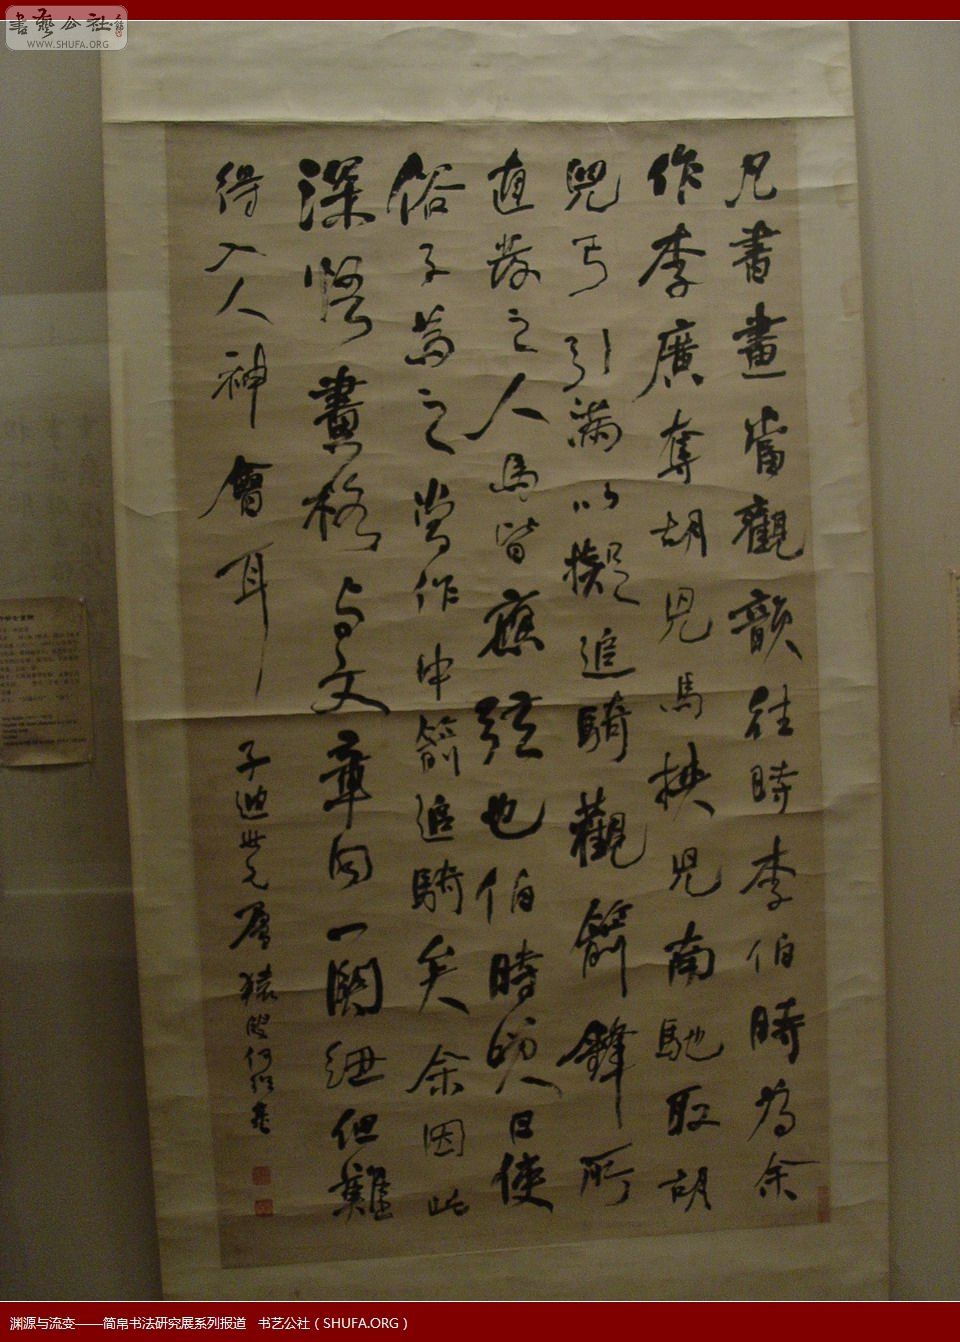 書藝公社
WWW.SHUFA.ORG
凡書畫當觀韻往時李伯時為余
作李廣奪胡兒馬挾兒南馳取胡
兒弓引滿以擬追騎觀箭鋒所
直發之人馬皆應弦也伯時笑曰使
俗子為之當作中箭追騎矣余因此
深悟畫格與文章同一關紐但難
得入人神會耳
子迪世兄屬 猿叟何紹基
渊源与流变——简帛书法研究展系列报道 书艺公社（SHUFA.ORG）